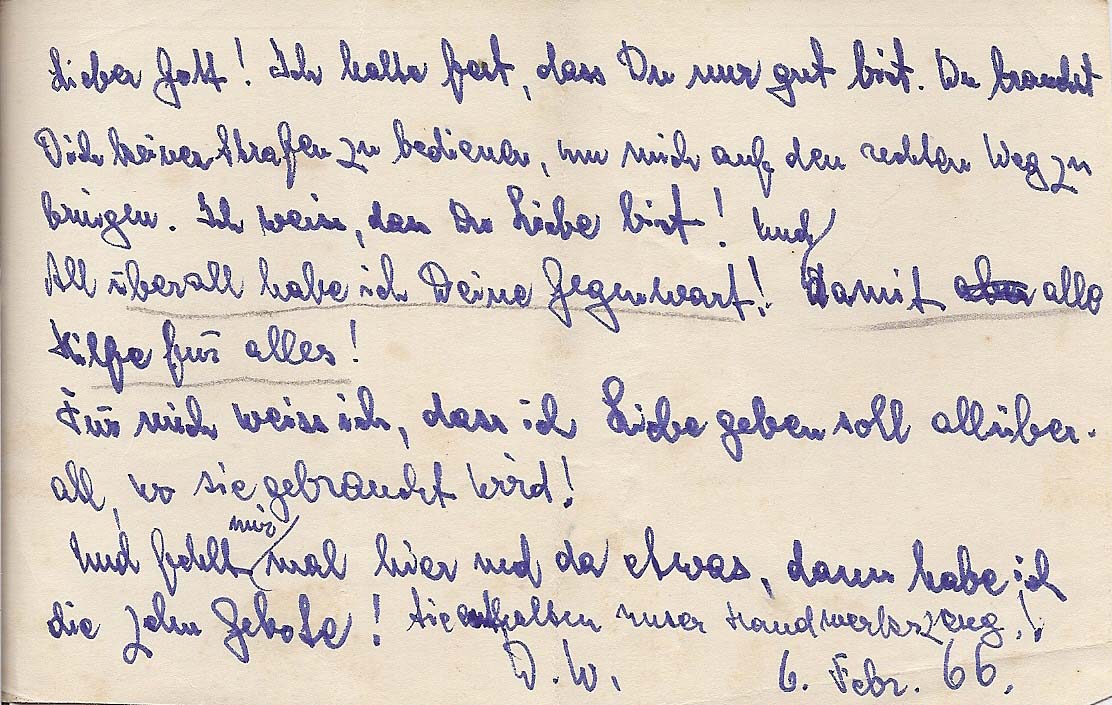 Lieber Gott! Ich halte fest, dass Du nur gut bist. Du brauchst
Dich keiner Strafen zu bedienen, um mich auf den rechten Weg zu
bringen. Ich weiss, dass Du Liebe bist! und
All überall habe ich Deine Gegenwart! damit alle
Hilfe für alles!
Für mich weiss ich, dass ich Liebe geben soll allüber-
all, wo sie gebraucht wird!
mir
Und fehlt mal hier und da etwas, dann habe ich
die zehn Gebote! Sie enthalten unser Handwerkszeug!
D. W.
6. Febr. 66.